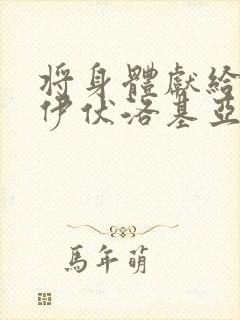 将身體獻給
伊伏洛基亞
馬年萌